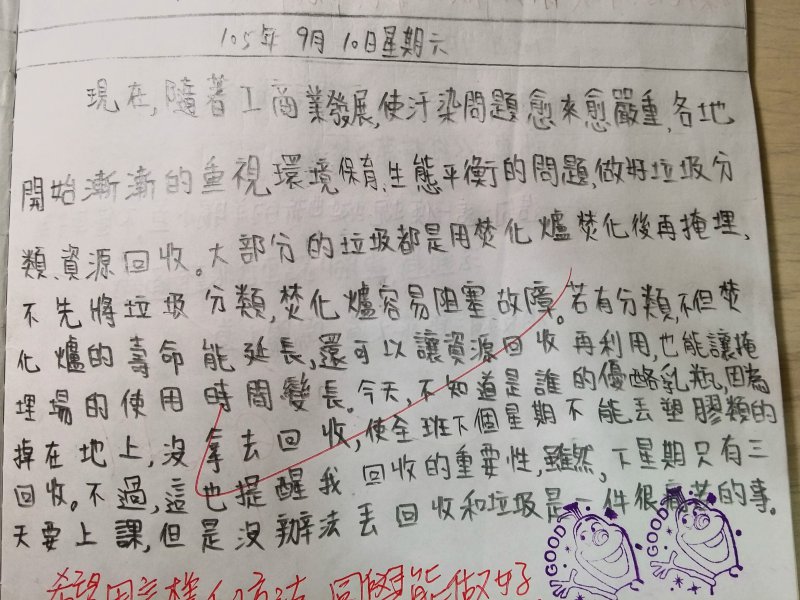 105年 9月 10日星期六
現在,隨著工商業發展,使汙染問題愈來愈嚴重,各地
開始漸漸的重視環境保育、生態平衡的問題,做好垃圾分
類、資源回收。大部分的垃圾都是用焚化爐焚化後再掩埋,
不先將垃圾分類,焚化爐容易阻塞、故障。若有分類,不但焚
化爐的壽命能延長,還可以讓資源回收再利用,也能讓掩
埋場的使用時間變長。今天,不知道是誰的優酪乳瓶,因為
掉在地上,沒拿去回收,使全班下個星期不能丟塑膠類的
回收。不過,這也提醒我回收的重要性,雖然,下星期只有三
天要上課,但是沒辦法丟回收和垃圾是一件很痛苦的事。
希望用這樣的方法,同學能做好
GOOD
GOOD